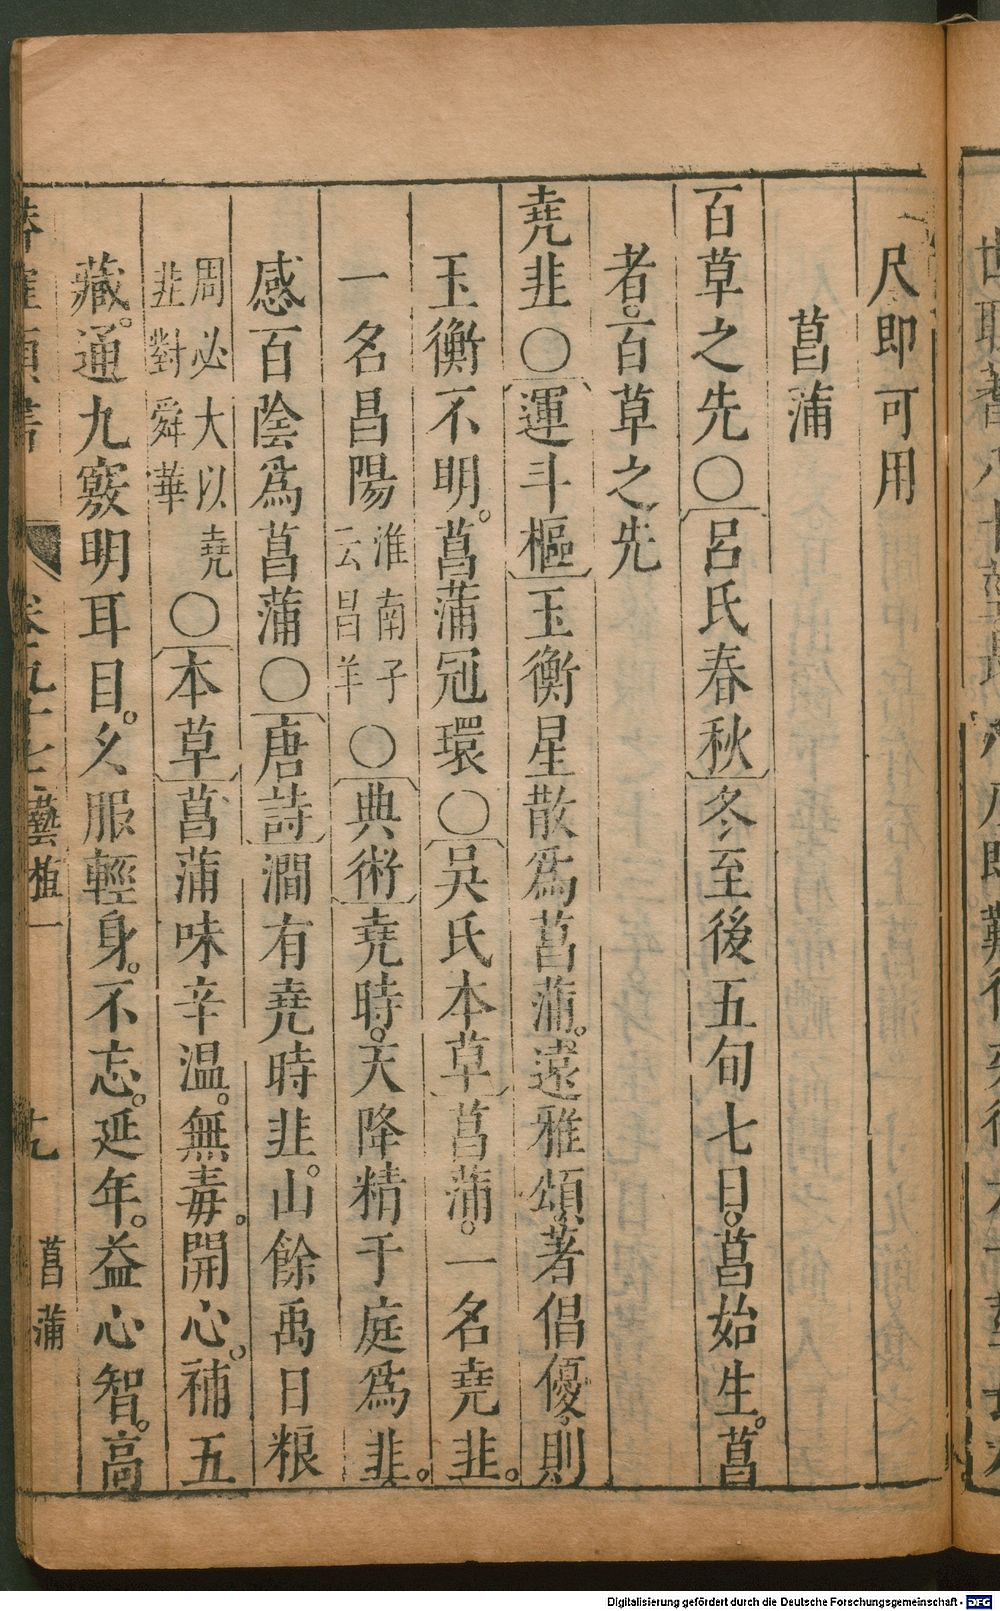 尺即可用
菖蒲
百草之先○呂氏春秋冬至後五旬七日。菖始生。菖
者。百草之先
堯韭○運斗樞玉衡星散爲菖蒲。遠雅頌。著倡優。則
玉衡不明。菖蒲冠環○吳氏本草菖蒲。一名堯韭。
一名昌陽淮南子云昌羊○典術堯時。天降精于庭爲韭。
感百陰爲菖蒲○唐詩澗有堯時韭。山餘禹日粮
周必大以堯韭對舜華○本草菖蒲味辛温。無毒。開心。補五
藏。通九竅明耳目。久服輕身。不忘。延年。益心智。高
卷九十七 藝植一 十九 菖蒲
Digitalisierung gefördert durch die Deutsche Forschungsgemeinschaft - DFG